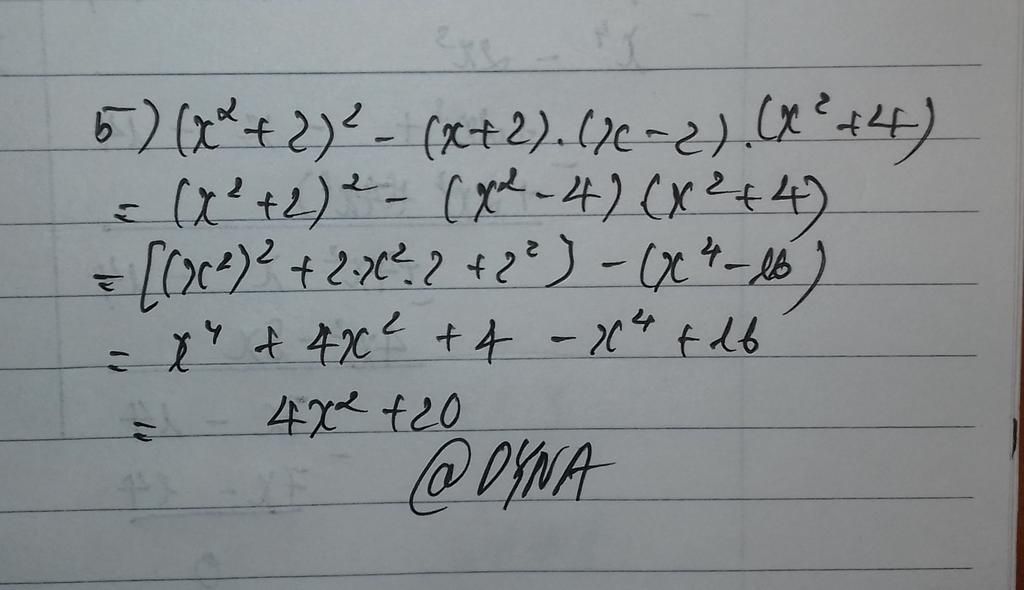 5) (x² + 2)² - (x+2).(x-2).(x²+4)
= (x² +2)² - (x² -4) (x² + 4)
= [(x²)² + 2.x².2 + 2²] - (x⁴ - 16)
= x⁴ + 4x² + 4 - x⁴ + 16
= 4x² + 20
@DYNA